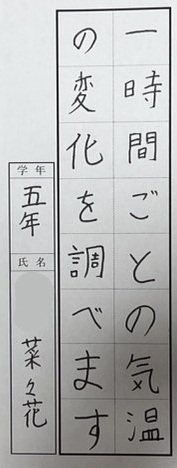 一時間ごとの気温
の変化を調べます
学年
五年
氏名
菜々花